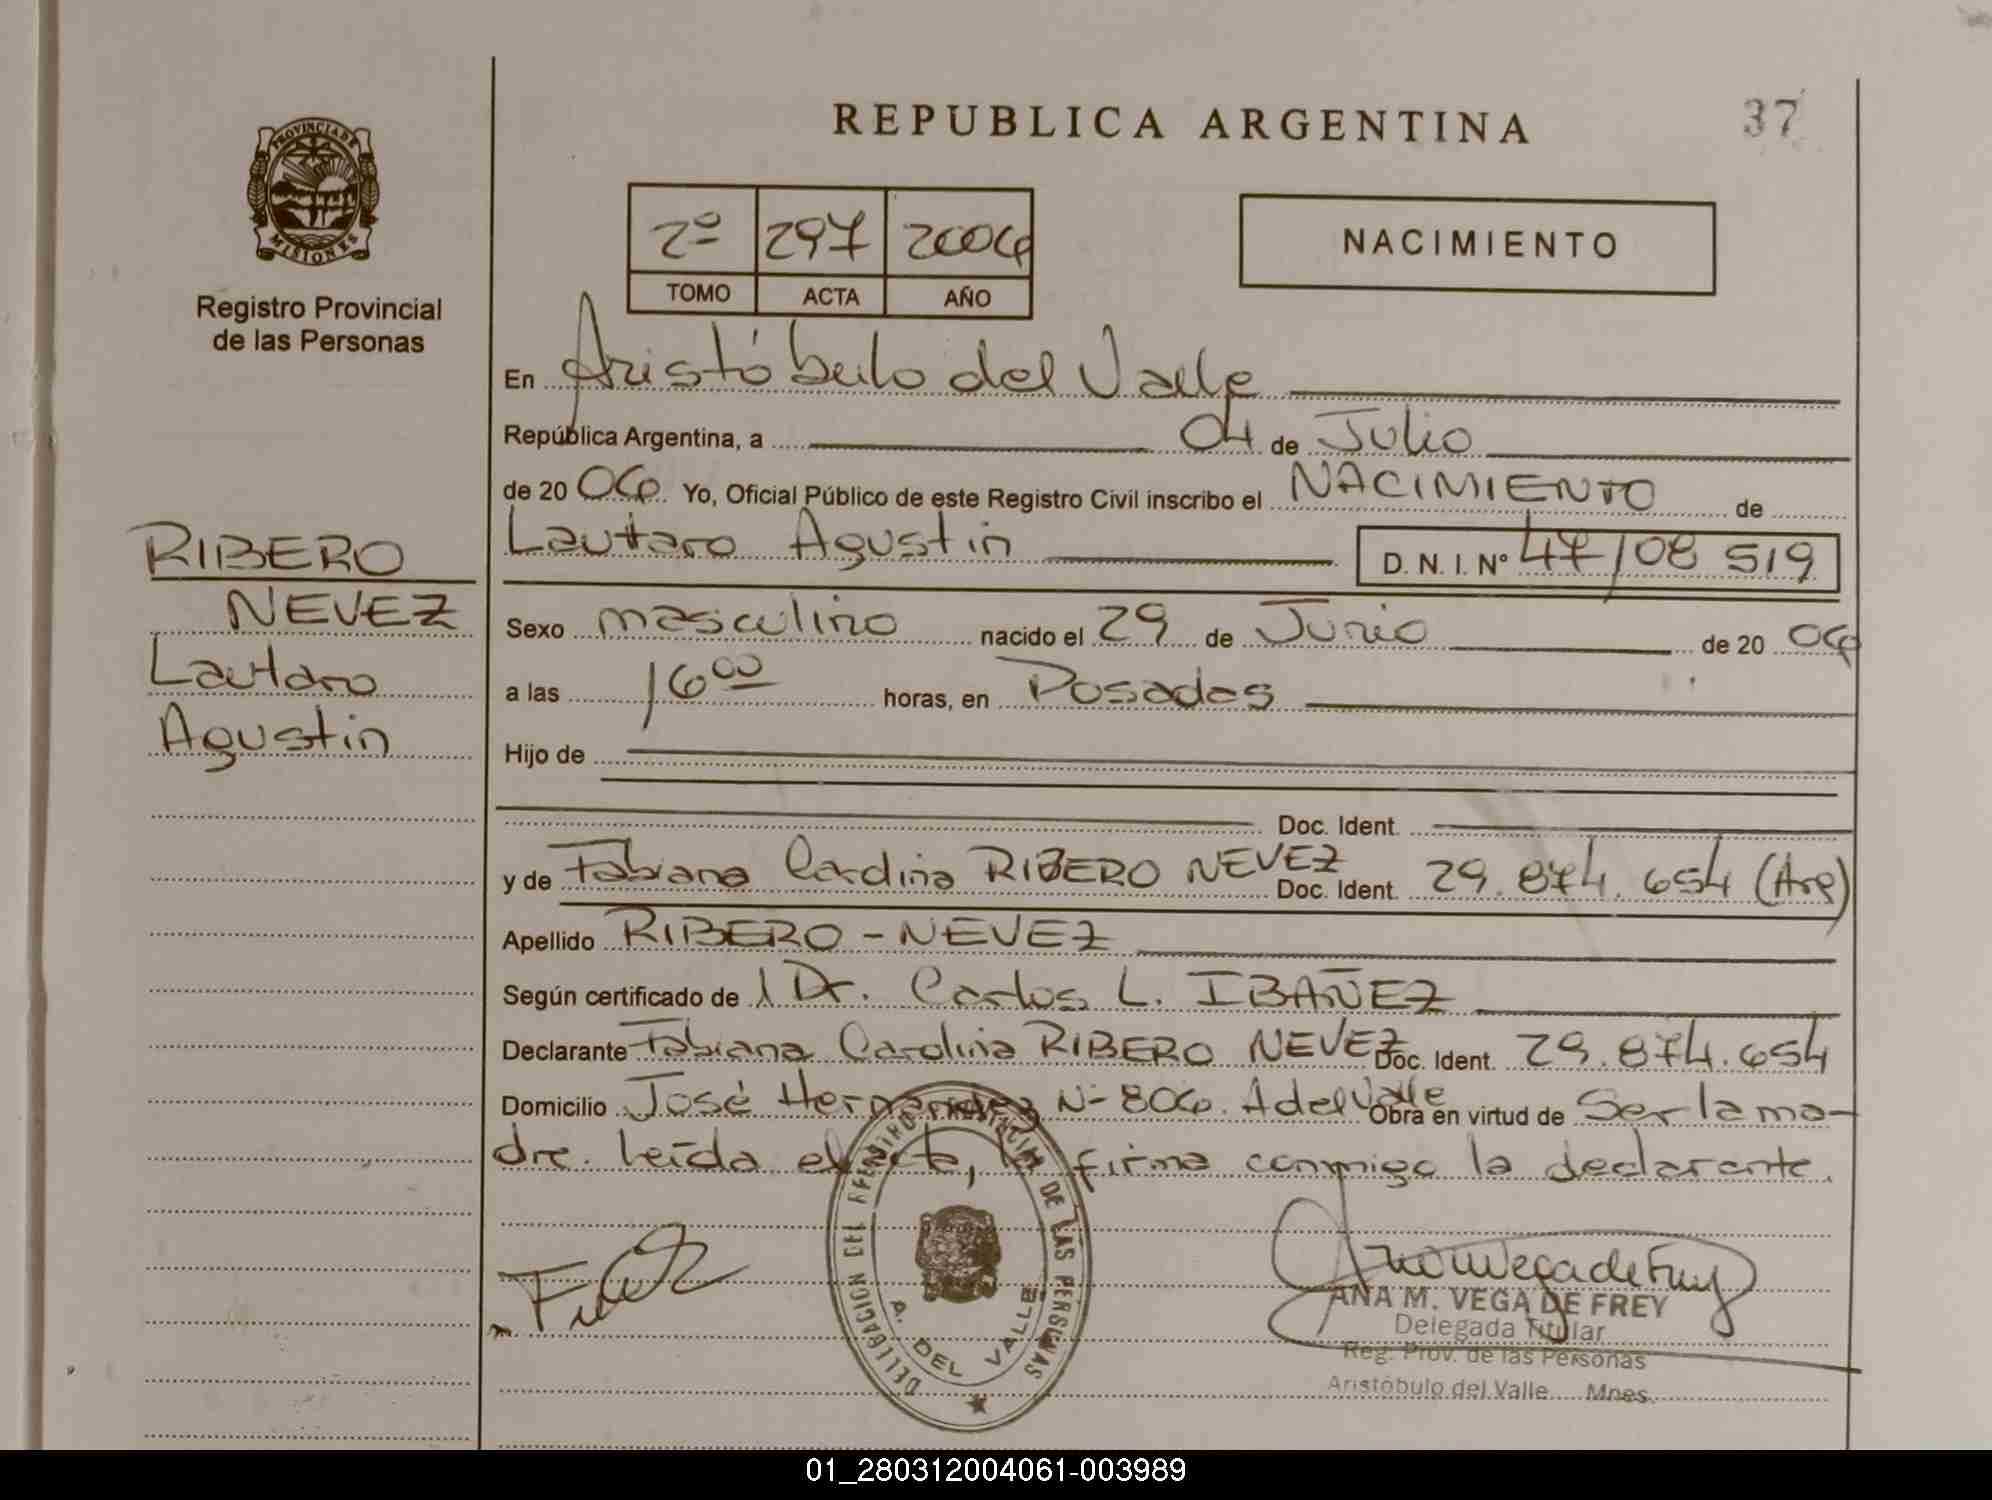 REPUBLICA ARGENTINA
37
PROVINCIA DE MISIONES
Registro Provincial
de las Personas
2º 297 2006
TOMO ACTA AÑO
NACIMIENTO
En Aristóbulo del Valle
República Argentina, a 04 de Julio
de 2006 Yo, Oficial Público de este Registro Civil inscribo el NACIMIENTO de
Lautaro Agustin D. N. I. Nº 47108519
RIBERO
NEVEZ
Lautaro
Agustin
Sexo masculino nacido el 29 de Junio de 2006
a las 16 00 horas, en Posadas
Hijo de
Doc. Ident.
y de Fabiana Cardina RIBERO NEVEZ Doc. Ident. 29.874.654 (Arg)
Apellido RIBERO - NEVEZ
Según certificado de 1 Dr. Carlos L. IBAÑEZ
Declarante Fabiana Carolina RIBERO NEVEZ Doc. Ident. 29.874.654
Domicilio José Hernandez Nº 806. A del Valle Obra en virtud de Ser la ma-
dre. leída el acta, la firma conmigo la declarante.
DELEGACION DEL REGISTRO PROVINCIAL DE LAS PERSONAS
A. DEL VALLE
Ana M Vega de Frey
ANA M. VEGA DE FREY
Delegada Titular
Reg. Prov. de las Personas
Aristóbulo del Valle Mnes.
01_280312004061-003989